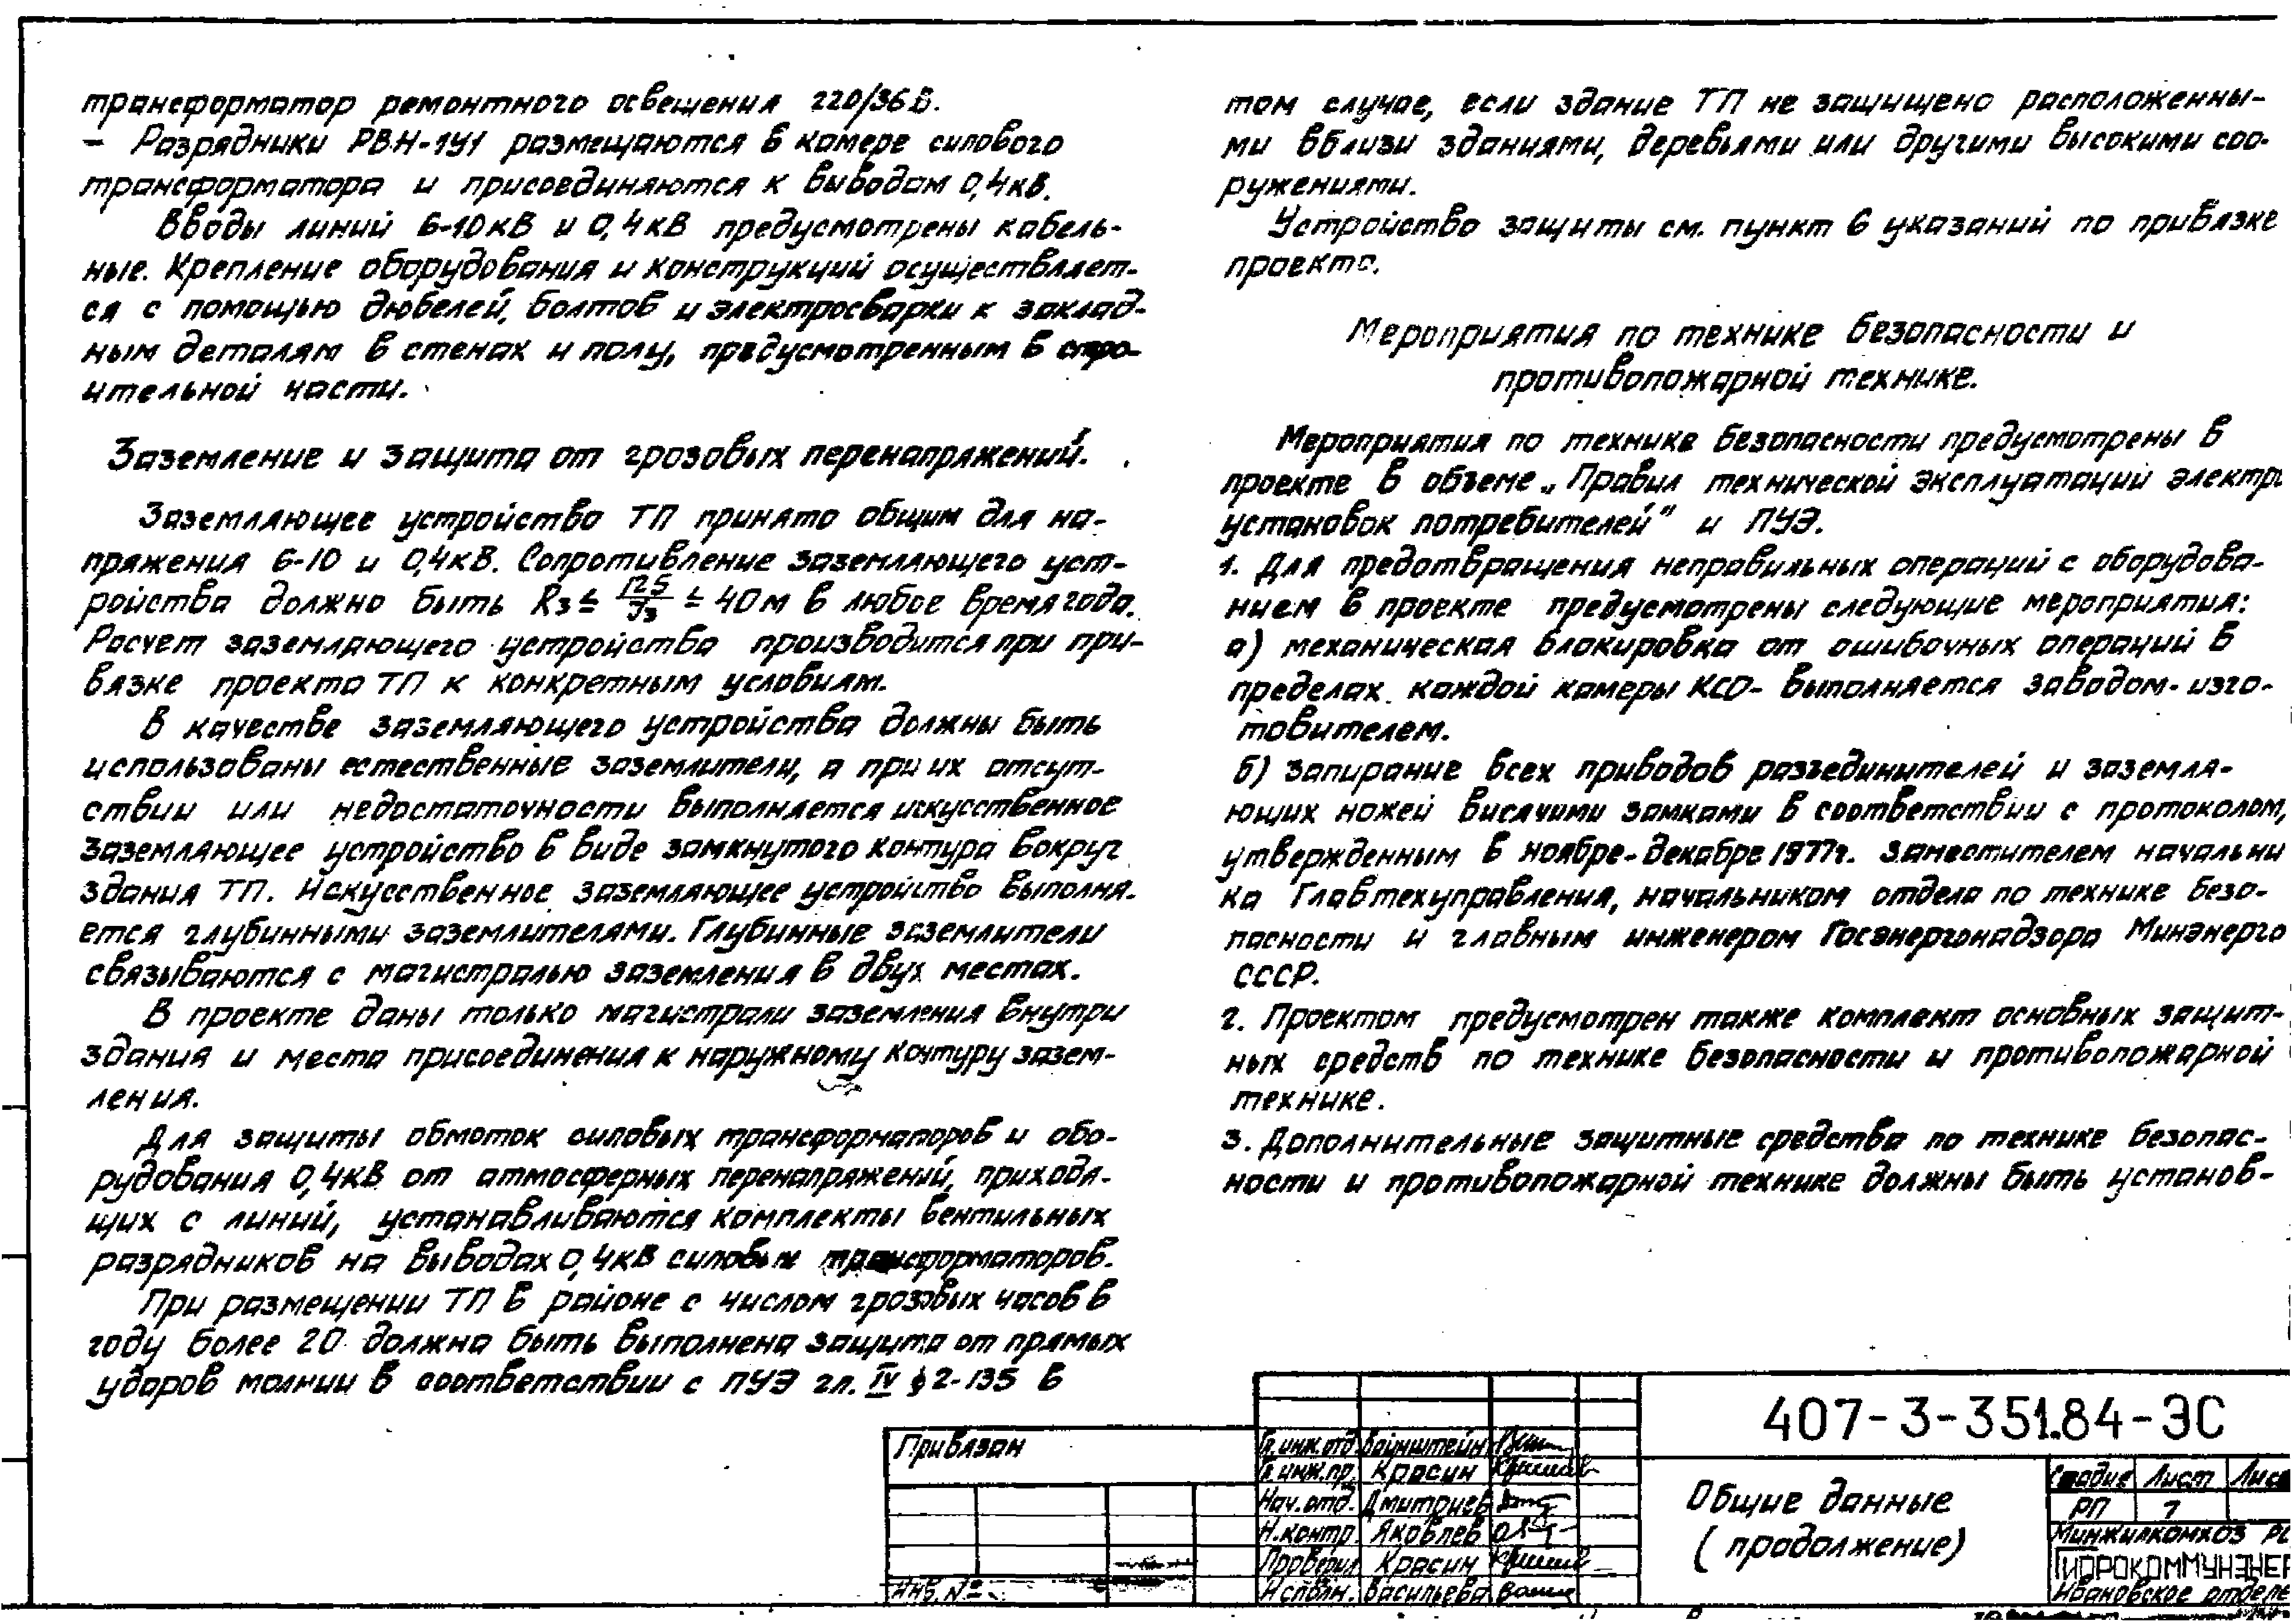 трансформатор ремонтного освещения 220/36В.
- Разрядники РВН-1У1 размещаются в камере силового
трансформатора и присоединяются к выводам 0,4кВ.
Вводы линий 6-10кВ и 0,4кВ предусмотрены кабель-
ные. Крепление оборудования и конструкций осуществляет-
ся с помощью дюбелей, болтов и электросварки к заклад-
ным деталям в стенах и полу, предусмотренным в стро-
ительной части.
Заземление и защита от грозовых перенапряжений.
Заземляющее устройство ТП принято общим для на-
пряжения 6-10 и 0,4кВ. Сопротивление заземляющего уст-
ройства должно быть Rз ≤ 125/Jз ≤ 40м в любое время года.
Расчет заземляющего устройства производится при при-
вязке проекта ТП к конкретным условиям.
В качестве заземляющего устройства должны быть
использованы естественные заземлители, а при их отсут-
ствии или недостаточности выполняется искусственное
заземляющее устройство в виде замкнутого контура вокруг
здания ТП. Искусственное заземляющее устройство выполня-
ется глубинными заземлителями. Глубинные заземлители
связываются с магистралью заземления в двух местах.
В проекте даны только магистрали заземления внутри
здания и места присоединения к наружному контуру зазем-
ления.
Для защиты обмоток силовых трансформаторов и обо-
рудования 0,4кВ от атмосферных перенапряжений, приходя-
щих с линий, устанавливаются комплекты вентильных
разрядников на выводах 0,4кВ силовых трансформаторов.
При размещении ТП в районе с числом грозовых часов в
году более 20 должна быть выполнена защита от прямых
ударов молнии в соответствии с ПУЭ гл. IV § 2-135 в
том случае, если здание ТП не защищено расположенны-
ми вблизи зданиями, деревьями или другими высокими соо-
ружениями.
Устройство защиты см. пункт 6 указаний по привязке
проекта.
Мероприятия по технике безопасности и
противопожарной технике.
Мероприятия по технике безопасности предусмотрены в
проекте в объеме „Правил технической эксплуатации электро
установок потребителей" и ПУЭ.
1. Для предотвращения неправильных операций с оборудова-
нием в проекте предусмотрены следующие мероприятия:
а) механическая блокировка от ошибочных операций в
пределах каждой камеры КСО- выполняется заводом-изго-
товителем.
б) запирание всех приводов разъединителей и заземля-
ющих ножей висячими замками в соответствии с протоколом,
утвержденным в ноябре-декабре 1977г. заместителем начальни
ка Главтехуправления, начальником отдела по технике безо-
пасности и главным инженером Госэнергонадзора Минэнерго
СССР.
2. Проектом предусмотрен также комплект основных защит-
ных средств по технике безопасности и противопожарной
технике.
3. Дополнительные защитные средства по технике безопас-
ности и противопожарной технике должны быть установ-
Привязан
Инв. №
Гл.инж.отд Вайнштейн
Гл.инж.пр. Красин
Нач.отд. Дмитриев
Н.контр. Яковлев
Проверил Красин
Исполн. Васильева
407-3-351.84-ЭС
Общие данные
(продолжение)
Стадия Лист Лис
РП 7
Минжилкомхоз РС
ГИПРОКОММУНЭНЕР
Ивановское отделе